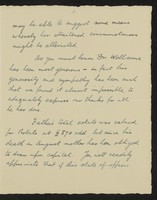 may be able to suggest some means
whereby her straitened circumstances
might be alleviated.
As you must know Dr Wellcome
has been most generous - in fact his
generosity and sympathy has been such
that we found it almost impossible to
adequately express our thanks for all
he has done.
Father's total estate was valued
for Probate at £890 odd but since his
death in August mother has been obliged
to draw upon capital. You will readily
appreciate that if this state of affairs